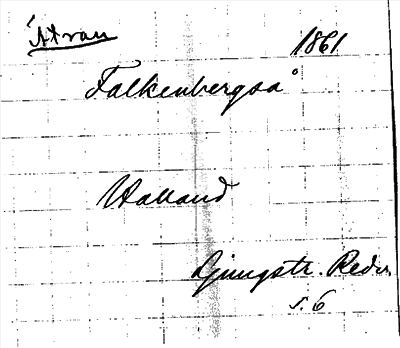 Ätran
1861
Falkenbergså
Halland
Ljungstr. Redo.
s. 6